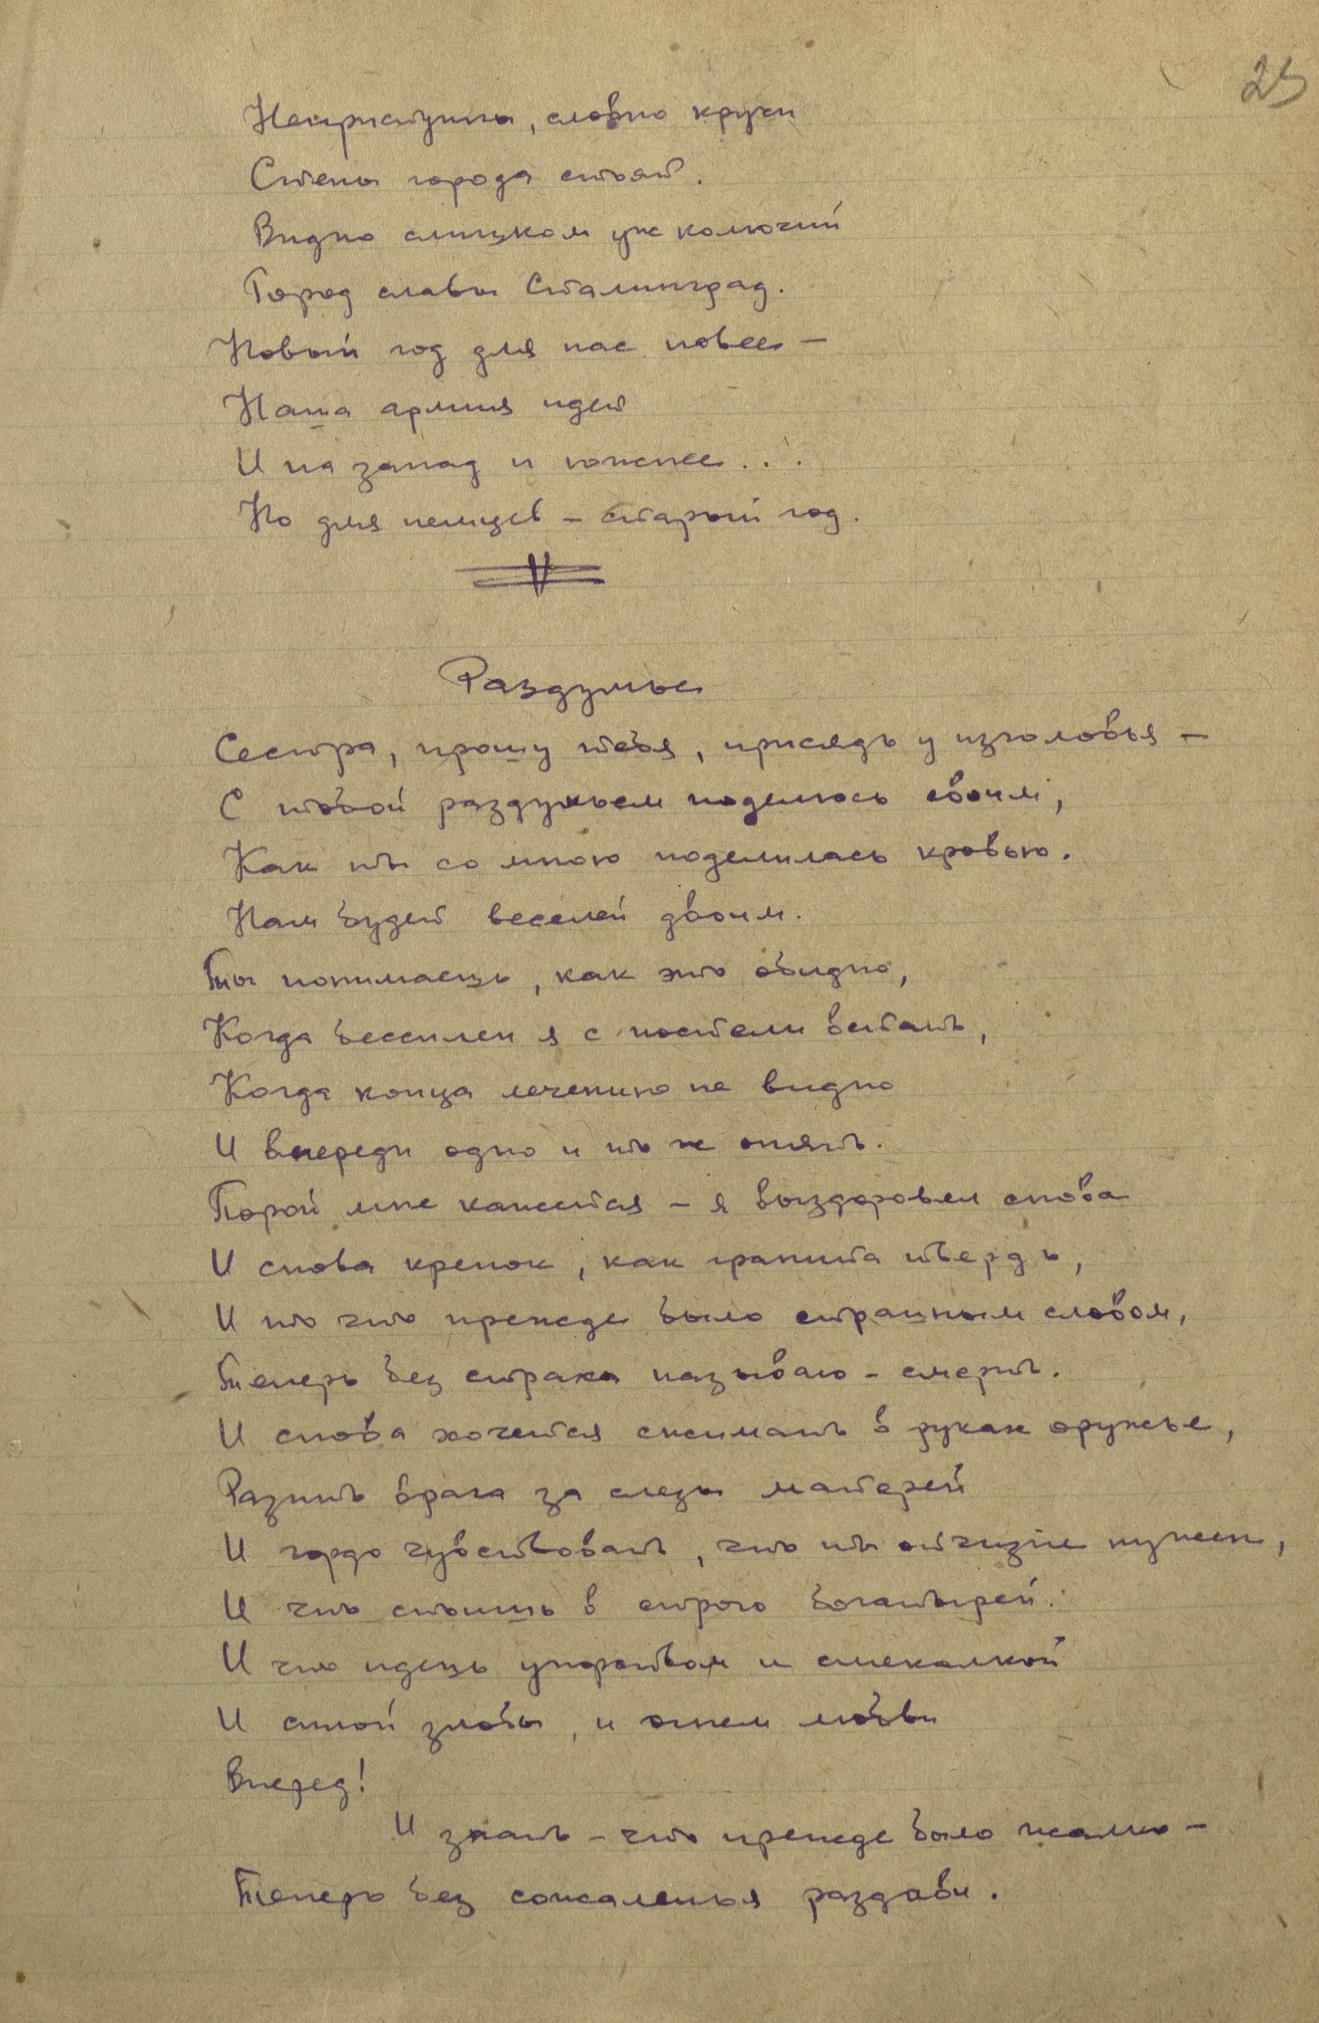 25
Неприступны, словно кручи
Стены города стоят.
Видно слишком уж колючий
Город славы Сталинград.
Новый год для нас новее —
Наша армия идет
И на запад и южнее...
Но для немцев – старый год.
Раздумье
Сестра, прошу тебя, присядь у изголовья —
С тобой раздумьем поделюсь своим,
Как ты со мною поделилась кровью.
Нам будет веселей двоим.
Ты понимаешь, как это обидно,
Когда бессилен я с постели встать,
Когда конца лечению не видно
И впереди одно и то же опять.
Порой мне кажется – я выздоровел снова
И снова крепок, как гранита твердь,
И то что прежде было страшным словом,
Теперь без страха называю – смерть.
И снова хочется сжимать в руках оружье,
Разить врага за слезы матерей
И гордо чувствовать, что ты отчизне нужен,
И что стоишь в строю богатырей.
И что идешь упорством и смекалкой
И силой злобы, и огнем любви
Вперед!
И знать – что прежде было жалко –
Теперь без сожаленья раздави.